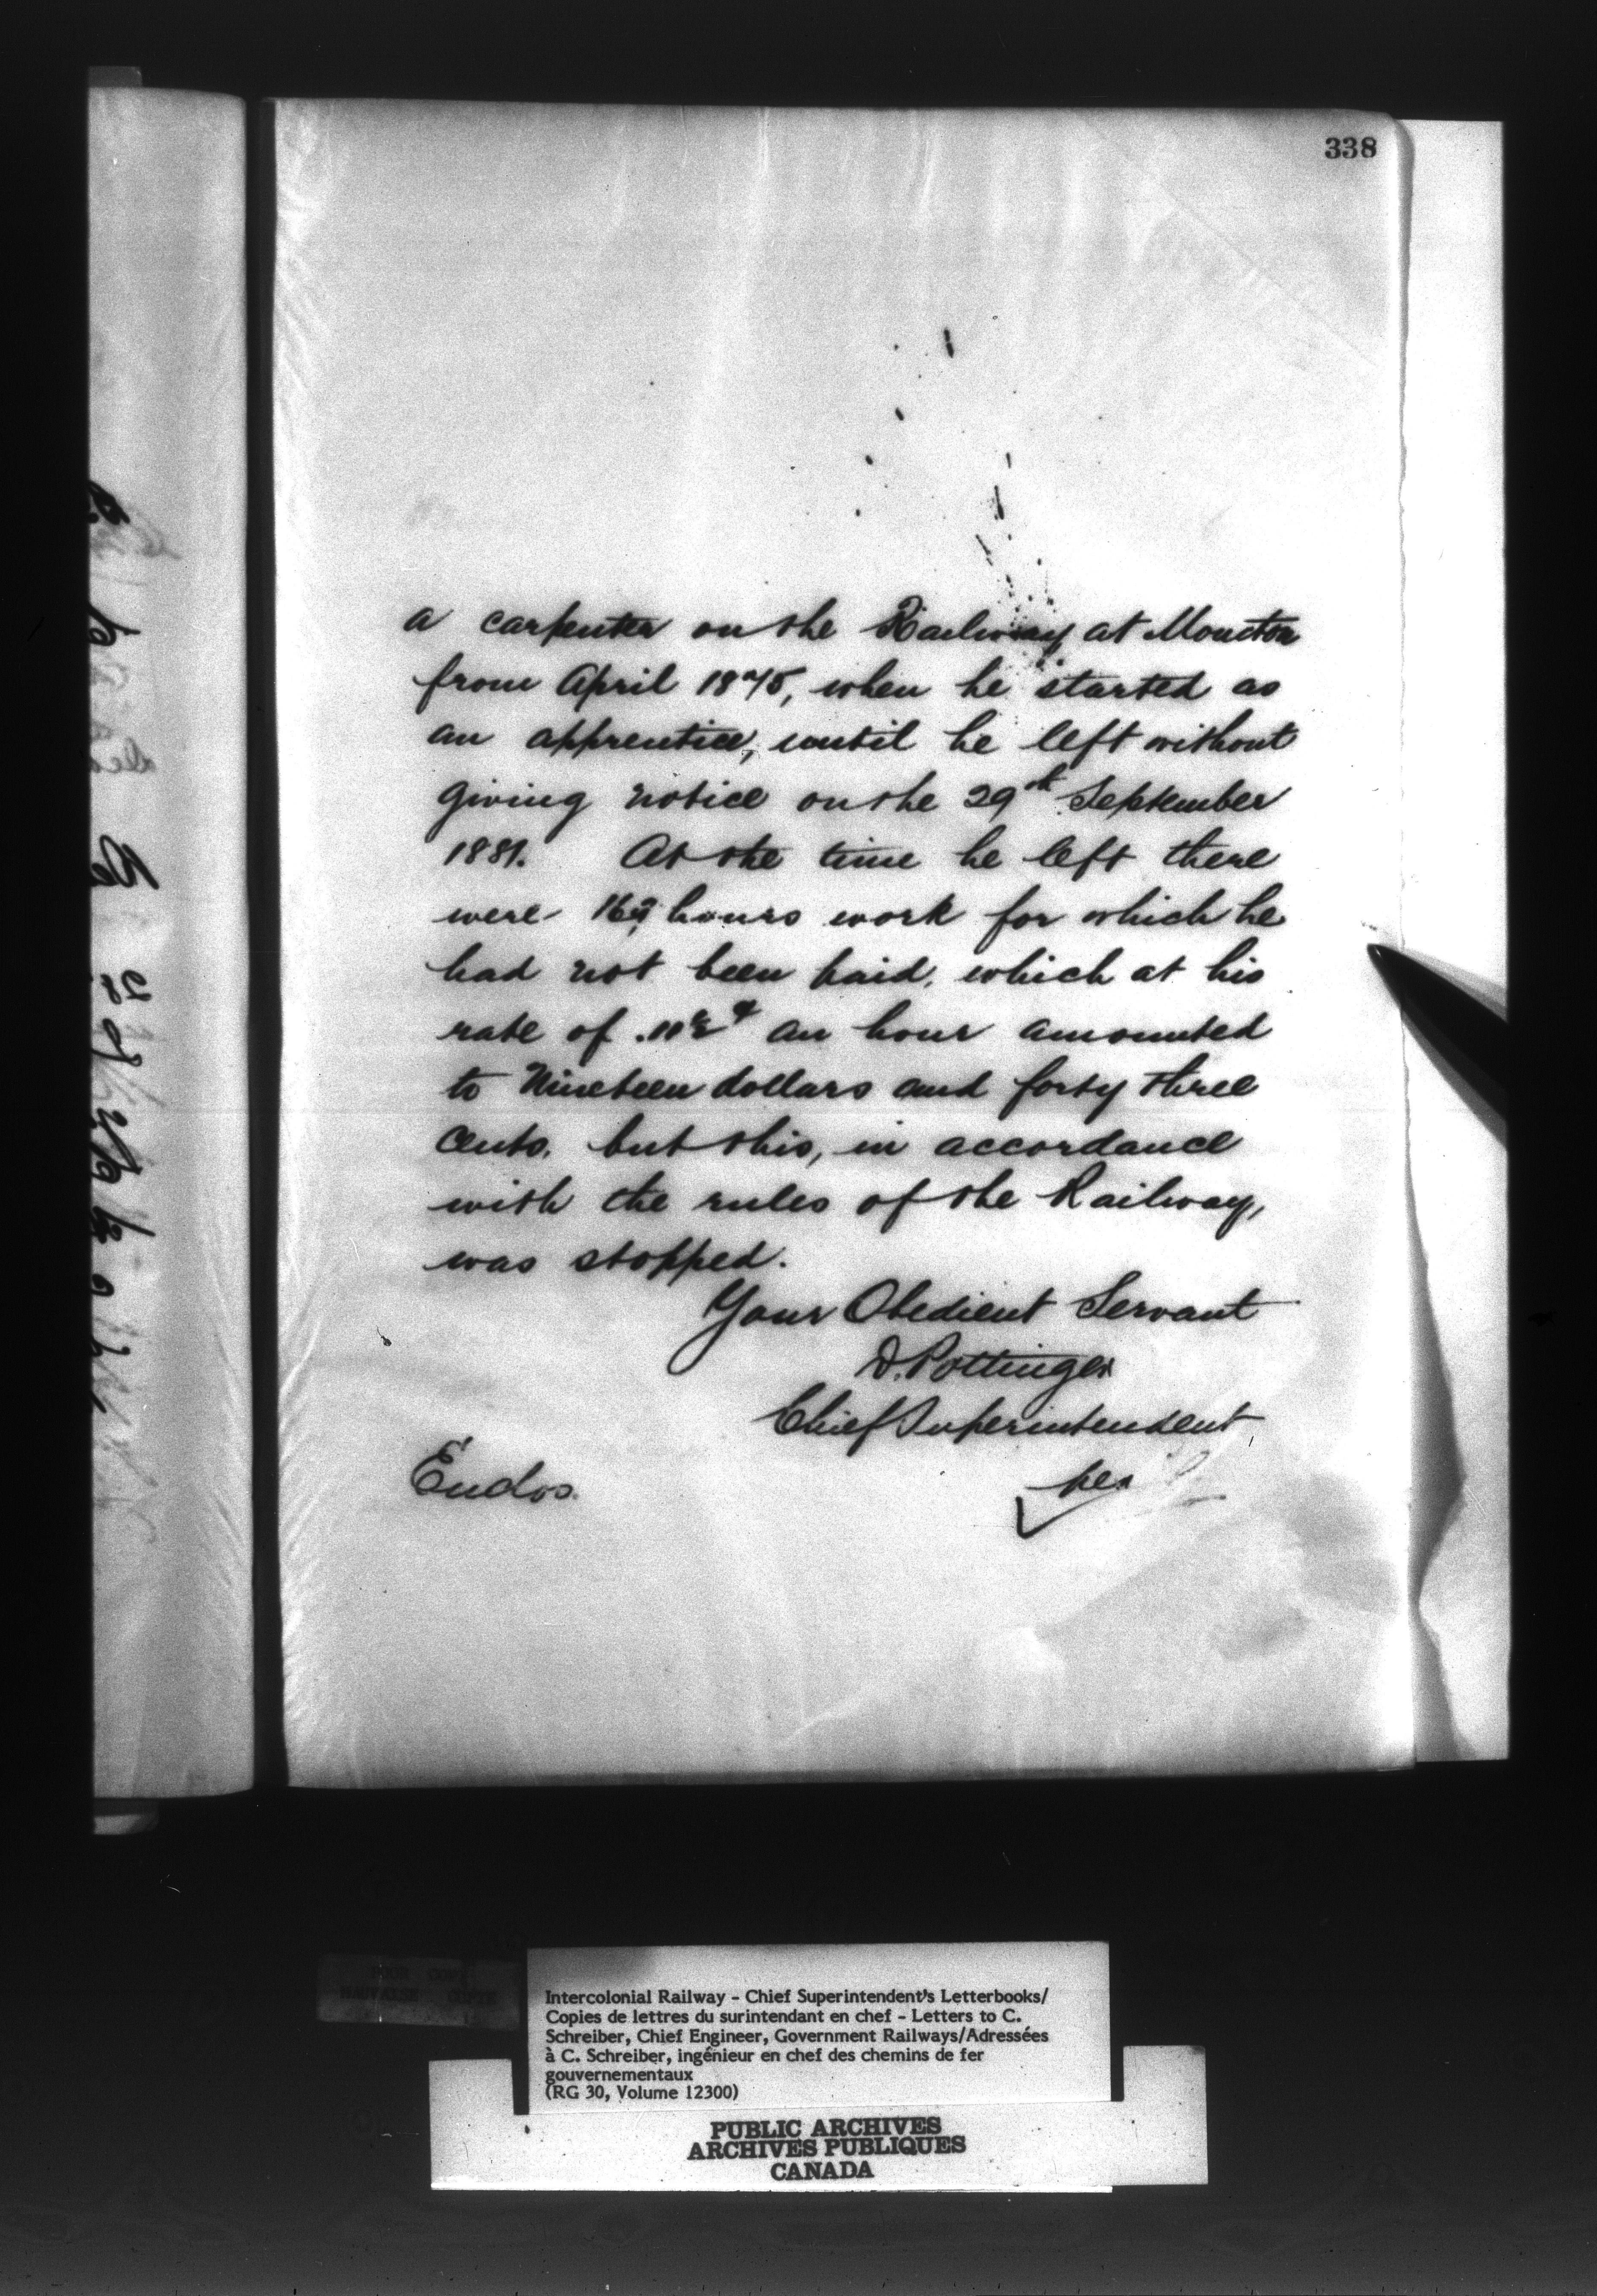 338
a carpenter on the Railway at Moncton
from April 1875, when he started as
an apprentice, until he left without
giving notice on the 29th September
1881. At the time he left there
were 169 hours work for which he
had not been paid, which at his
rate of .11½ ¢ an hour amounted
to Nineteen dollars and forty three
cents, but this, in accordance
with the rules of the Railway,
was stopped.
Your Obedient Servant
D. Pottinger
Chief Superintendent
per
Enclos.
POOR COPY
MAUVAISE COPIE
Intercolonial Railway - Chief Superintendent's Letterbooks/
Copies de lettres du surintendant en chef - Letters to C.
Schreiber, Chief Engineer, Government Railways/Adressées
à C. Schreiber, ingénieur en chef des chemins de fer
gouvernementaux
(RG 30, Volume 12300)
PUBLIC ARCHIVES
ARCHIVES PUBLIQUES
CANADA